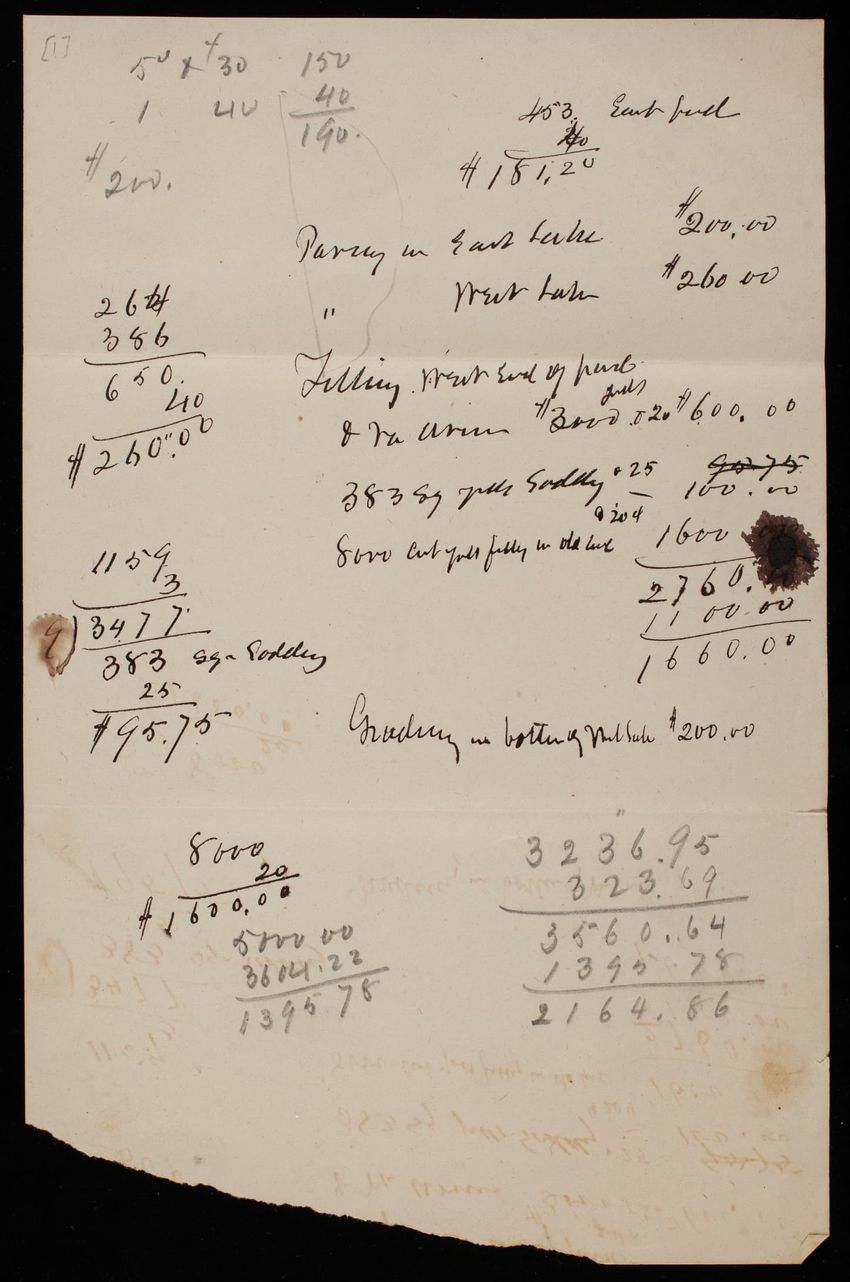 [1]
50 x 30 150
1 40 40
190.
$200.
453. East
40
$181.20
Paving in East Lake $200.00
" West Lake $260.00
264
386
650.
40
$260.00
Filling West End of pond
yds
$3000 @ 20 $600.00
383 Sq yds Sodding @ 25 95.75
100.00
@ 20¢
8000 cub yds in old 1600
2760.
1100.00
1660.00
1159
3
9) 3477
383 Sq. Sodding
25
$95.75
Grading in bottom of West Lake $200.00
8000
20
$1600.00
5000 00
3604.22
1395 78
3236.95
323.69
3560.64
1395.78
2164.86